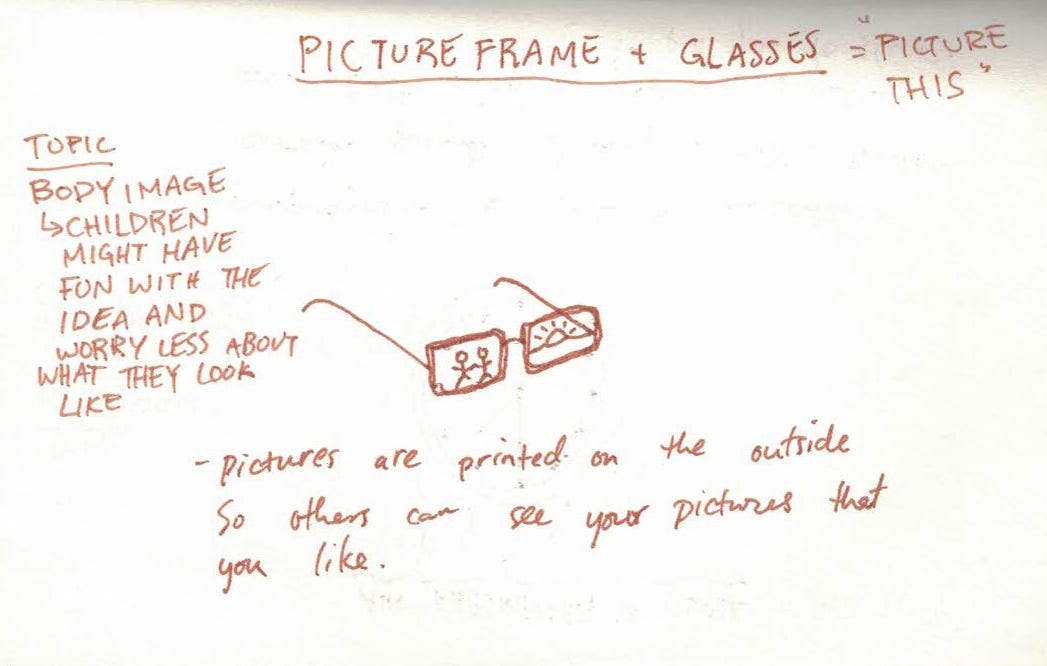 PICTURE FRAME + GLASSES = "PICTURE
THIS"
TOPIC
BODY IMAGE
↳CHILDREN
MIGHT HAVE
FUN WITH THE
IDEA AND
WORRY LESS ABOUT
WHAT THEY LOOK
LIKE
- pictures are printed on the outside
So others can see your pictures that
you like.